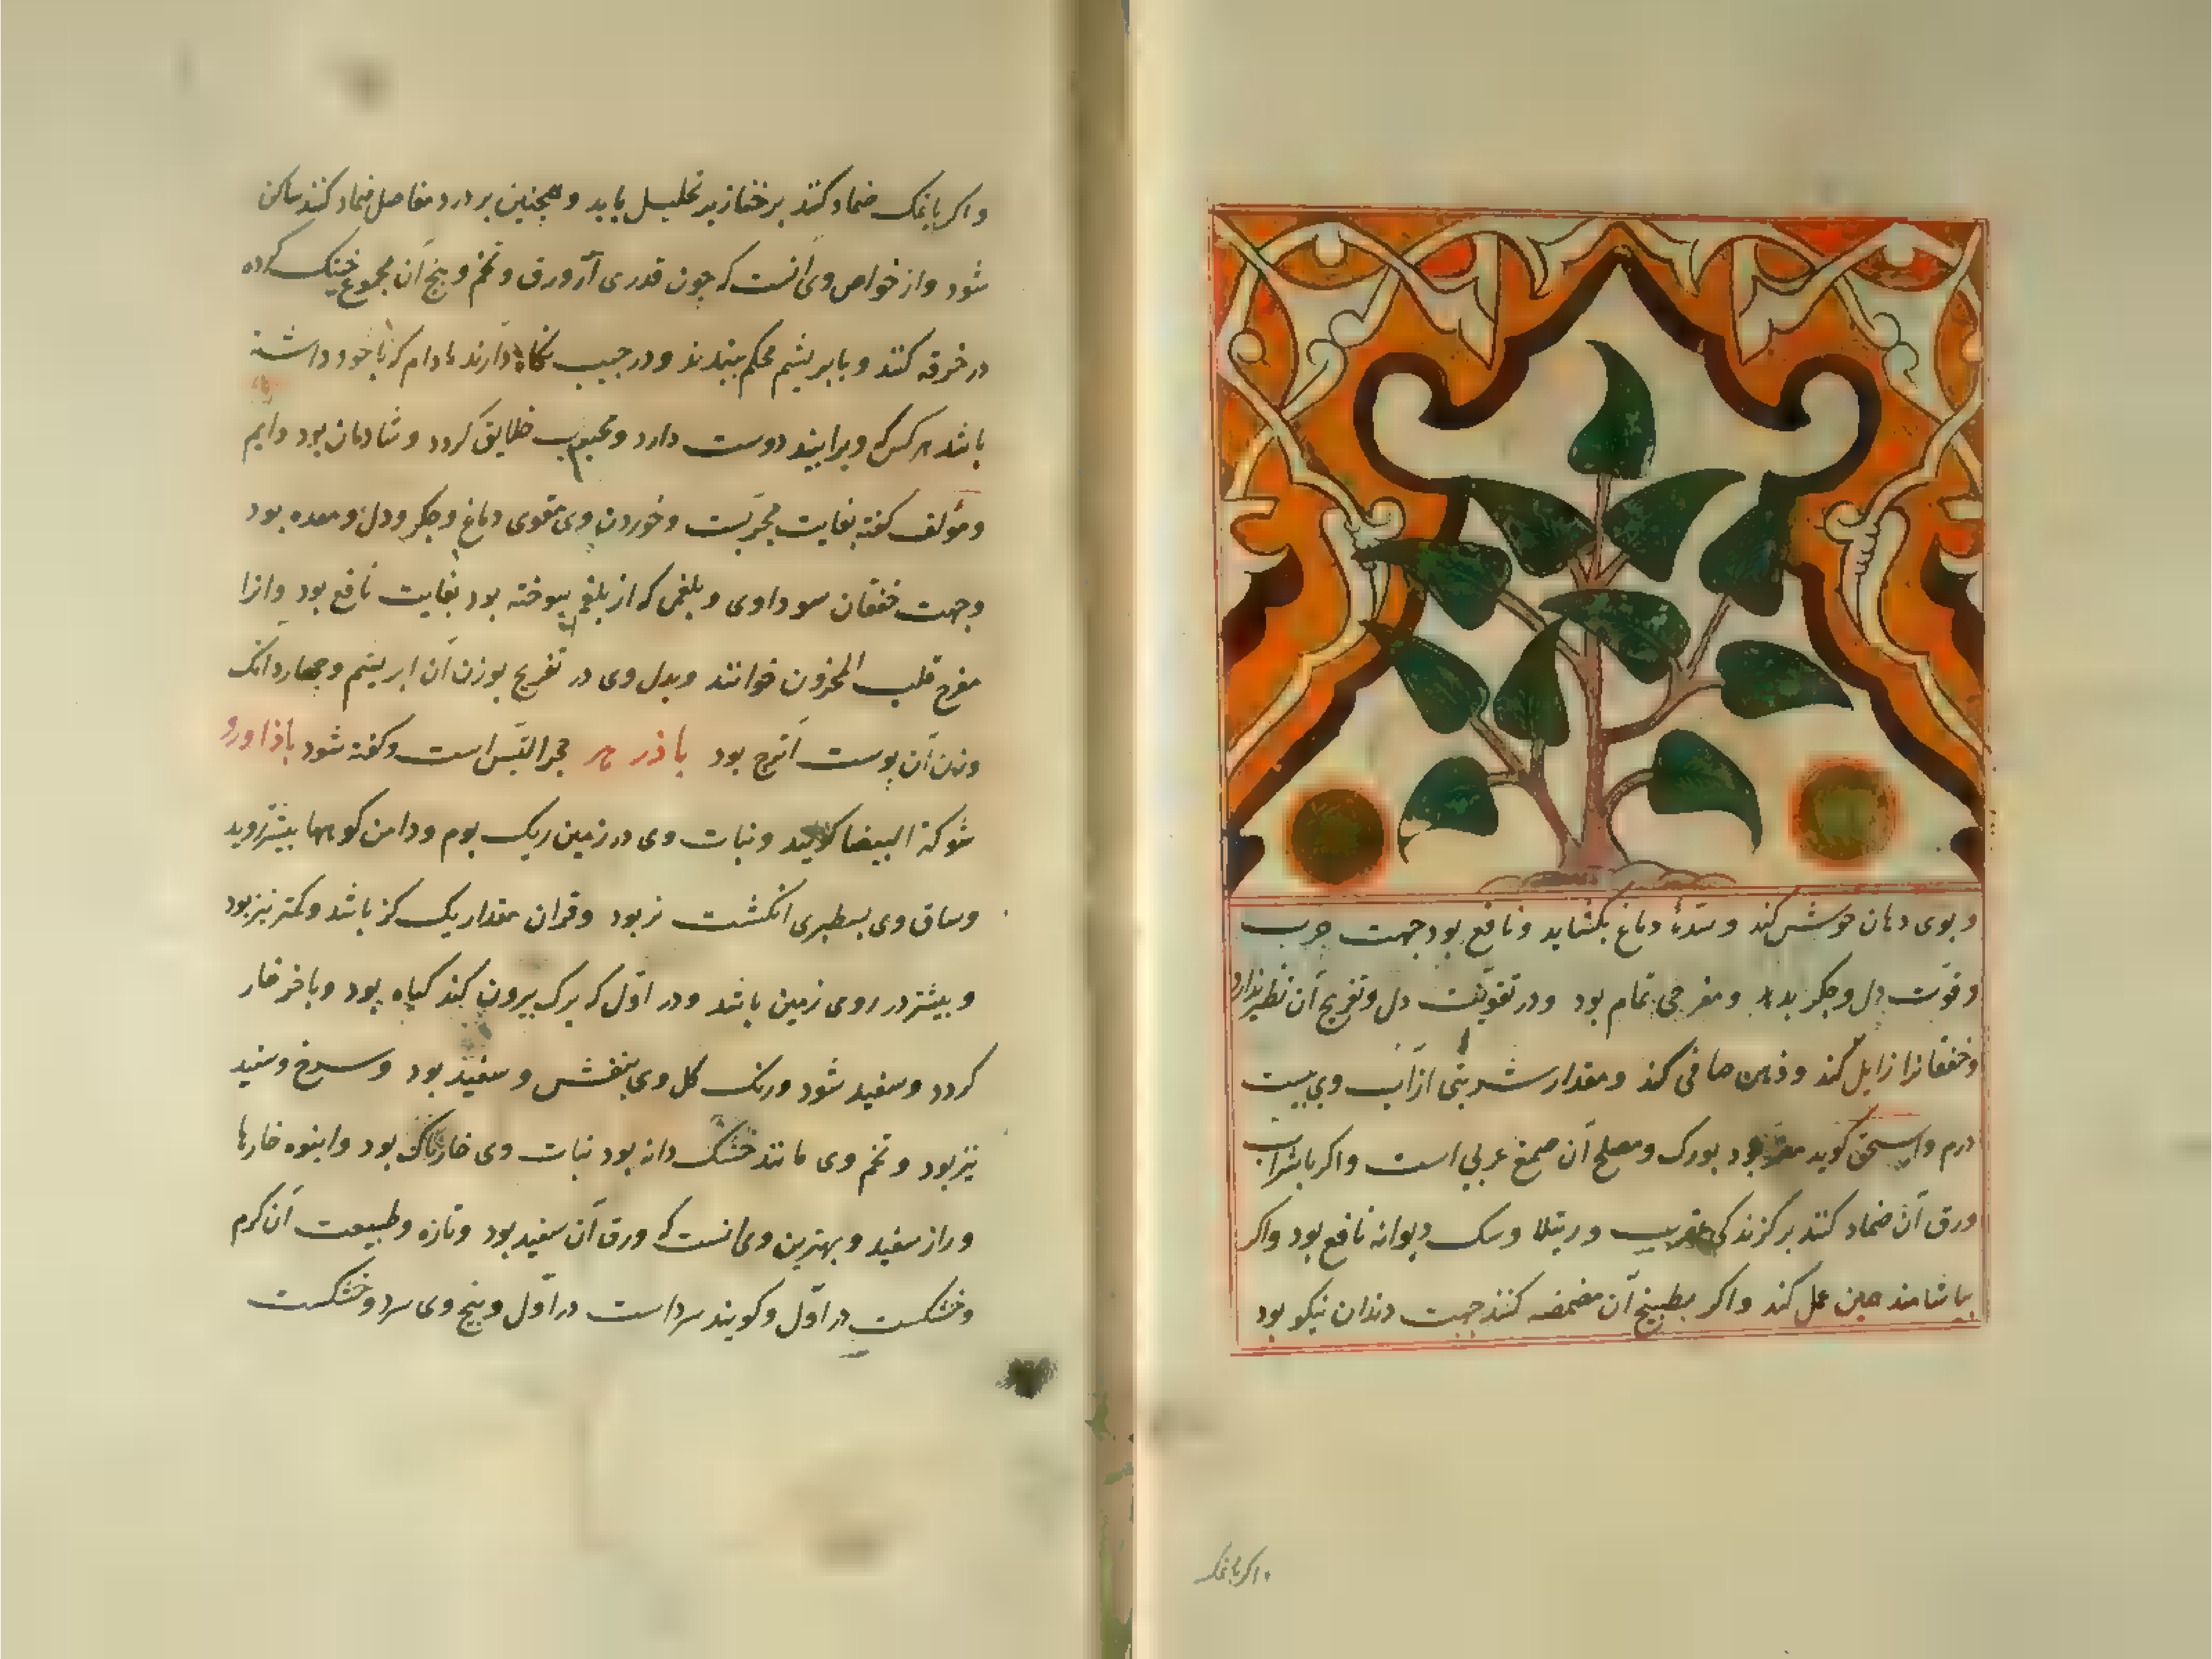 و بوی دهان خوش کند و سدۀ دماغ بکشاید و نافع بود جهت جرب
و قوّت دل و جکر بدهد و مفرحی تمام بود و در تقویت دل و تفریح آن نظیر ندارد
و خفقانرا زایل کند و ذهن صافی کند و مقدار شربتی از آب وی بیست
درم و اسحق کوید مضر بود بورک و مصلح آن صمغ عربی است و اکر با شراب
ورق آن ضماد کنند بر کزندکی عقرب و رتیلا و سک دیوانه نافع بود و اکر
بیاشامند همین عمل کند و اکر بطبیخ آن مضمضه کنند جهت دندان نیکو بود
و اکر با نمک
و اکر با نمک ضماد کنند بر خنازیر تحلیل یابد و همچنین بر درد مفاصل ضماد کنند ساکن
شود و از خواص وی آنست که چون قدری از ورق و تخم و بیخ آن مجموع خشک کرده
در خرقه کنند و بابریشم محکم ببندند و در جیب نکاه دارند مادام که با خود داشته
باشد هر کس که ویرا بیند دوست دارد و محبوب خلایق کردد و شادمان بود دایم
و مؤلف کفته بغایت مجرّبست و خوردن وی مقوی دماغ و جکر و دل و معده بود
و جهت خفقان سوداوی و بلغمی که از بلغم سوخته بود بغایت نافع بود و آنرا
مفرح قلب المحزون خوانند و بدل وی در تفریح بوزن آن ابریشم و چهار دانک
وزن آن پوست اترج بود باذر هر حجر التیس است و کفته شود باذاورد
شوکة البیضا کویند و نبات وی در زمین ریک بوم و دامن کوهها بیشتر روید
و ساق وی بسطبری انکشت نر بود و قد آن مقدار یک کز باشد و کمتر نیز بود
و بیشتر در روی زمین باشد و در اوّل که برک بیرون کند کیاه بود و باخر خار
کردد و سفید شود و رنک کل وی بنفش و سفید بود و سرخ و سفید
نیز بود و تخم وی مانند خشک دانه بود نبات وی خارناک بود و انبوه خارها
و راز سفید و بهترین وی آنست که ورق آن سفید بود و تازه و طبیعت آن کرم
و خشکست در اوّل و کویند سرد است در اوّل و بیخ وی سرد و خشکست